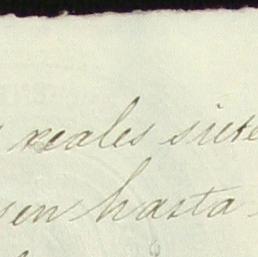 reales siete
sen hasta